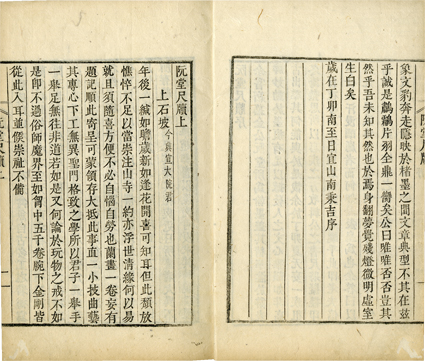 象文豹奔走隱映於楮墨之間文章典型不其在玆
乎誠是片羽全鼎一臠矣公曰唯唯否否豈其
然乎吾未知其然也於焉身翻夢覺殘燈微明虛室
生白矣
歲在丁卯南至日宜山南秉吉序
阮堂尺牘上
上石坡 今興宣大院君
年後一緘如瞻歲新如逢花開喜可知耳但此頹放
憔悴不足以當崇注山寺一約亦浮世清緣何以易
就且須隨喜方便不必自惱自勞也蘭畫一卷妄有
題記順此寄呈可蒙領存大抵此事直一小技曲藝
其專心下工無異聖門格致之學所以君子一舉手
一舉足無往非道若如是又何論於玩物之戒不如
是卽不過俗師魔界至如胷中五千卷腕下金剛皆
從此入耳並候崇祉不備